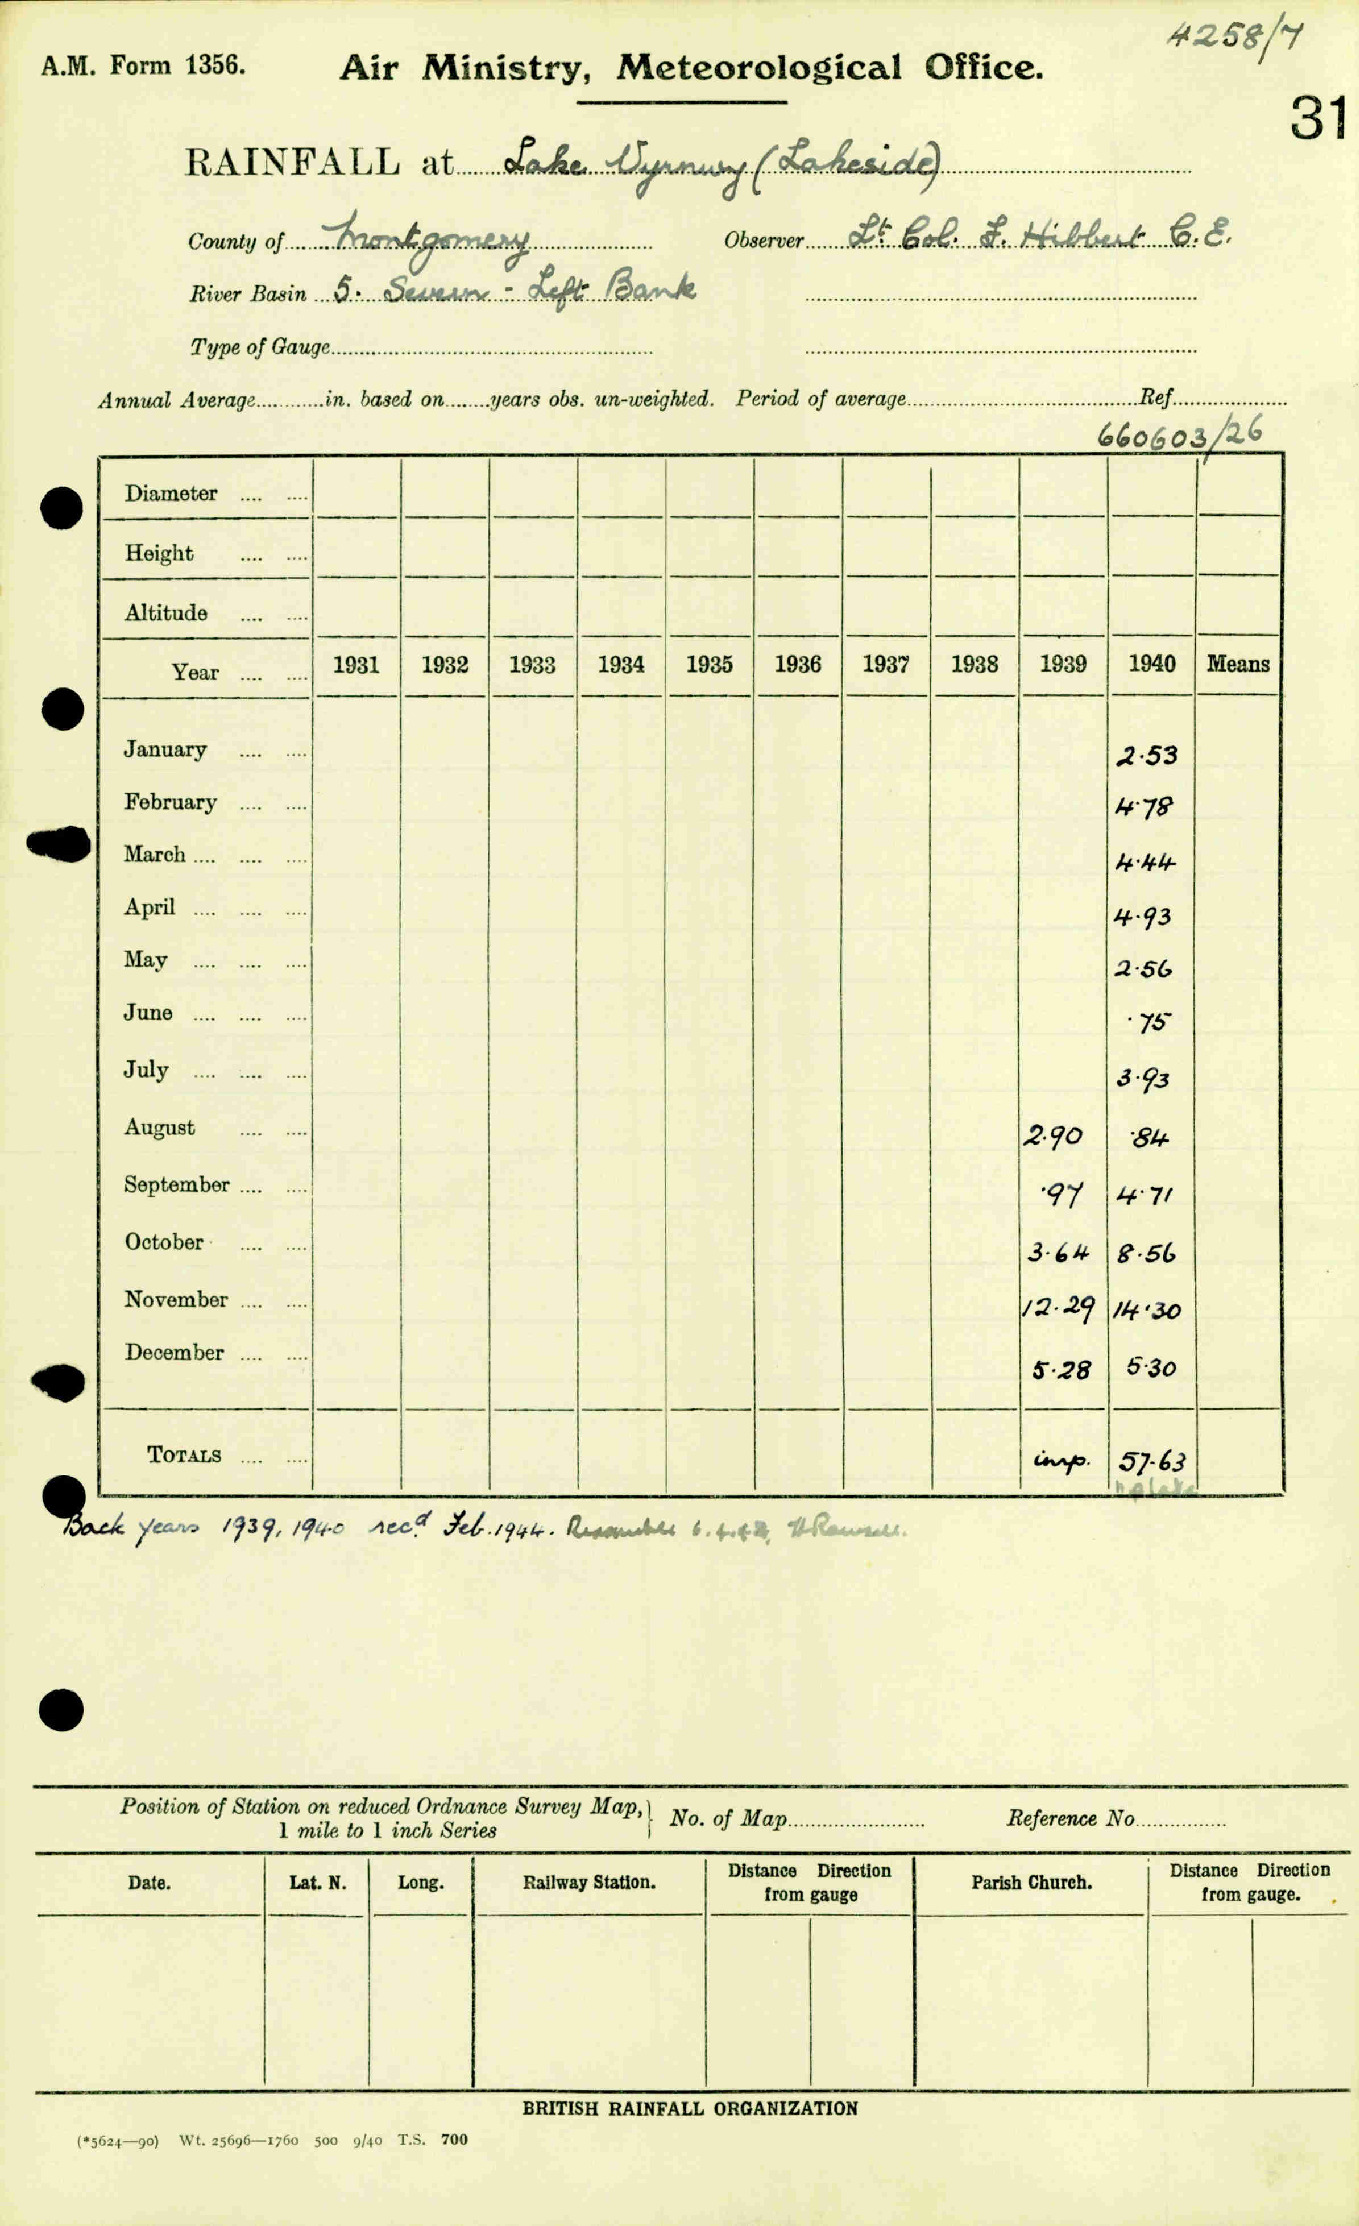 4258/7
A.M. Form 1356. Air Ministry, Meteorological Office.
31
RAINFALL at Lake Vyrnwy (Lakeside)
County of Montgomery Observer Lt Col. F. Hibbert C.E.
River Basin 5. Severn - Left Bank
Type of Gauge
Annual Average in. based on years obs. un-weighted. Period of average Ref
660603/26
Diameter
Height
Altitude
Year 1931 1932 1933 1934 1935 1936 1937 1938 1939 1940 Means
January 2.53
February 4.78
March 4.44
April 4.93
May 2.56
June .75
July 3.93
August 2.90 .84
September .97 4.71
October 3.64 8.56
November 12.29 14.30
December 5.28 5.30
TOTALS imp. 57.63
Back years 1939, 1940 recd Feb. 1944.
Position of Station on reduced Ordnance Survey Map, No. of Map Reference No
1 mile to 1 inch Series
Date. Lat. N. Long. Railway Station. Distance Direction from gauge Parish Church. Distance Direction from gauge.
BRITISH RAINFALL ORGANIZATION
(*5624—90) Wt. 25696—1760 500 9/40 T.S. 700